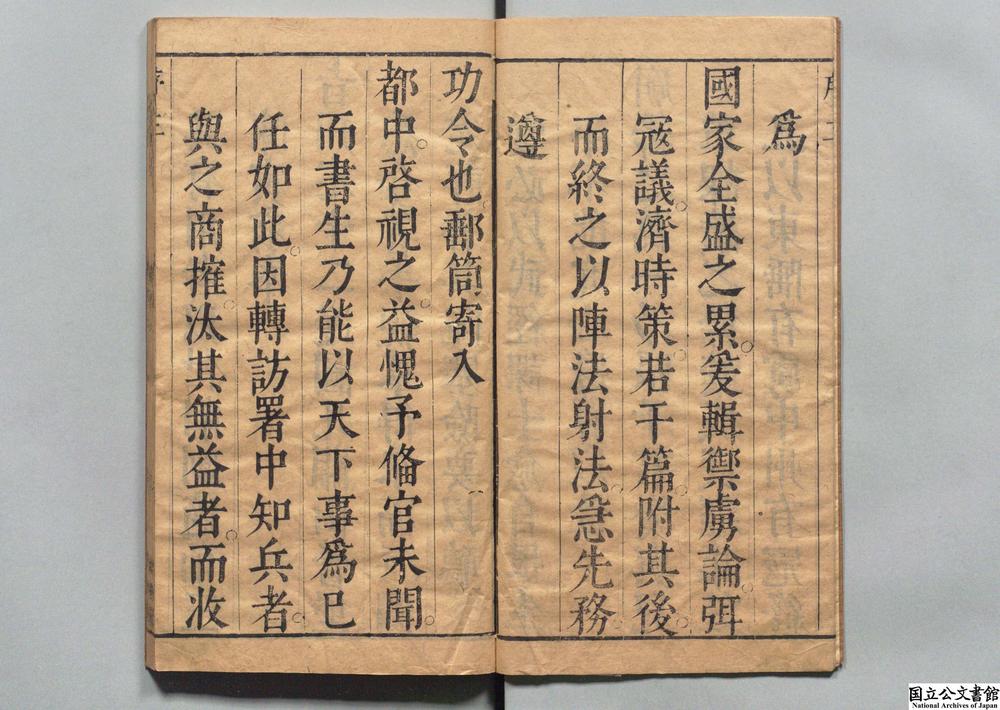 爲
國家全盛之累。爰輯禦虜論。弭
冦議。濟時策。若干篇。附其後。
而終之以陣法射法。急先務。
遵
功令也。郵筒寄入
都中。啓視之。益愧予偹官未聞。
而書生乃能以天下事爲已
任如此。因轉訪署中知兵者。
與之商搉。汰其無益者。而收
国立公文書館
National Archives of Japan